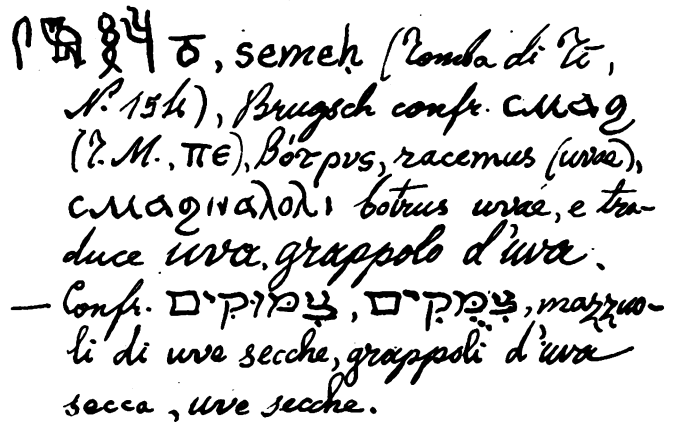 , semeḥ (Tomba di Ti,
N.º 154), Brugsch confr. ⲥⲙⲁϩ
(T. M., ⲡⲉ), βότρυς, racemus (uvae),
ⲥⲙⲁϩⲛⲁⲗⲟⲗⲓ botrus uvae, e tra-
duce uva, grappolo d'uva.
— Confr. צִמּוּקִים, צִמֻּקִים, mazzuo-
li di uve secche, grappoli d'uva
secca, uve secche.